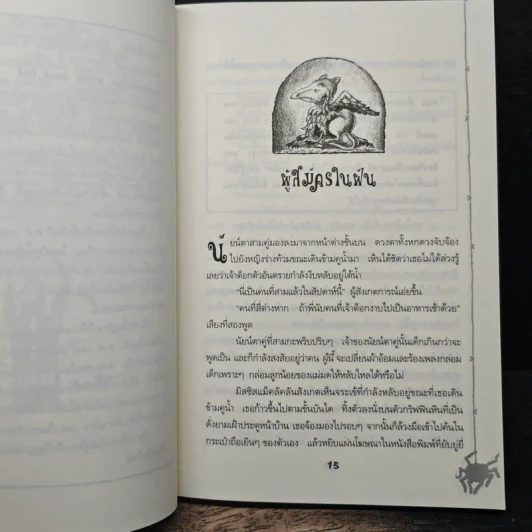 ผู้สมัครในฝัน
นัยน์ตาสามคู่มองลงมาจากหน้าต่างชั้นบน ดวงตาทั้งหกดวงจับจ้อง
ไปยังหญิงร่างท้วมขณะเดินข้ามคูน้ำมา เห็นได้ชัดว่าเธอไม่ได้ล่วงรู้
เลยว่าเจ้าด็อกตัวอันตรายกำลังงีบหลับอยู่ใต้น้ำ
"นี่เป็นคนที่สามแล้วในสัปดาห์นี้" ผู้สังเกตการณ์เอ่ยขึ้น
"คนที่สี่ต่างหาก ถ้าพี่นับคนที่เจ้าด็อกงาบไปเป็นอาหารเช้าด้วย"
เสียงที่สองพูด
นัยน์ตาคู่ที่สามกะพริบปริบๆ เจ้าของนัยน์ตาคู่นั้นเด็กเกินกว่าจะ
พูดเป็น และก็กำลังสงสัยอยู่ว่าคน ผู้นี้ จะเปลี่ยนผ้าอ้อมและร้องเพลงกล่อม
เด็กเพราะๆ กล่อมลูกน้อยของแม่มดให้หลับใหลได้หรือไม่
มิสซิสแม็คลัคลันสังเกตเห็นจระเข้ที่กำลังหลับอยู่ขณะที่เธอเดิน
ข้ามคูน้ำ เธอก้าวขึ้นไปตามขั้นบันได ทิ้งตัวลงนั่งบนตัวกริฟฟินหินที่เป็น
ตั่งยามเฝ้าประตูหน้าบ้าน เธอจ้องมองไปรอบๆ จากนั้นก็ล้วงมือเข้าไปค้นใน
กระเป๋าถือเยินๆ ของตัวเอง แล้วหยิบแผ่นโฆษณาในหนังสือพิมพ์ที่ยับยู่ยี่
15